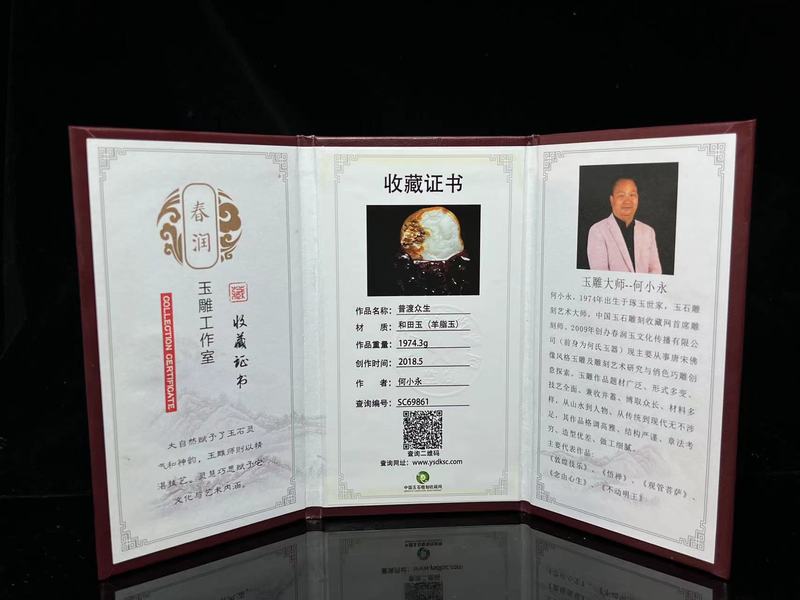 春
润
玉雕工作室
藏
收藏证书
COLLECTION CERTIFICATE
大自然赋予了玉石灵
气和神韵，玉雕师则以精
湛技艺、灵慧巧思赋予它
文化与艺术内涵。
收藏证书
作品名称：普渡众生
材 质：和田玉（羊脂玉）
作品重量：1974.3g
创作时间：2018.5
作 者：何小永
查询编号：SC69861
查询二维码
查询网址：www.ysdksc.com
中国玉石雕刻收藏网
玉雕大师--何小永
何小永，1974年出生于琢玉世家，玉石雕
刻艺术大师，中国玉石雕刻收藏网首席雕
刻师。2009年创办春润玉文化传播有限公
司（前身为何氏玉器）现主要从事唐宋佛
像风格玉雕及雕刻艺术研究与俏色巧雕创
意探索。玉雕作品题材广泛、形式多变、
技艺全面、兼收并蓄、博取众长、材料多
样，从山水到人物、从传统到现代无不涉
足，其作品格调高雅、结构严谨、章法考
究、造型优差、做工细腻。
主要代表作品：
《敦煌技乐》、《悟禅》、《观管菩萨》、
《念由心生》、《不动明王》